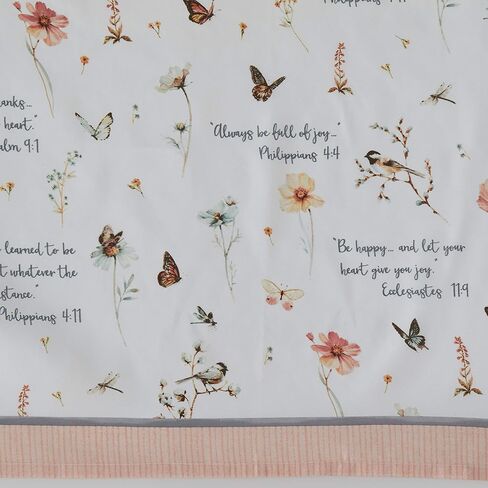 Philippians 4:11
anks...
heart."
alm 9:1
"Always be full of joy..."
Philippians 4:4
learned to be
t whatever the
stance."
Philippians 4:11
"Be happy... and let your
heart give you joy.
Ecclesiastes 11:9